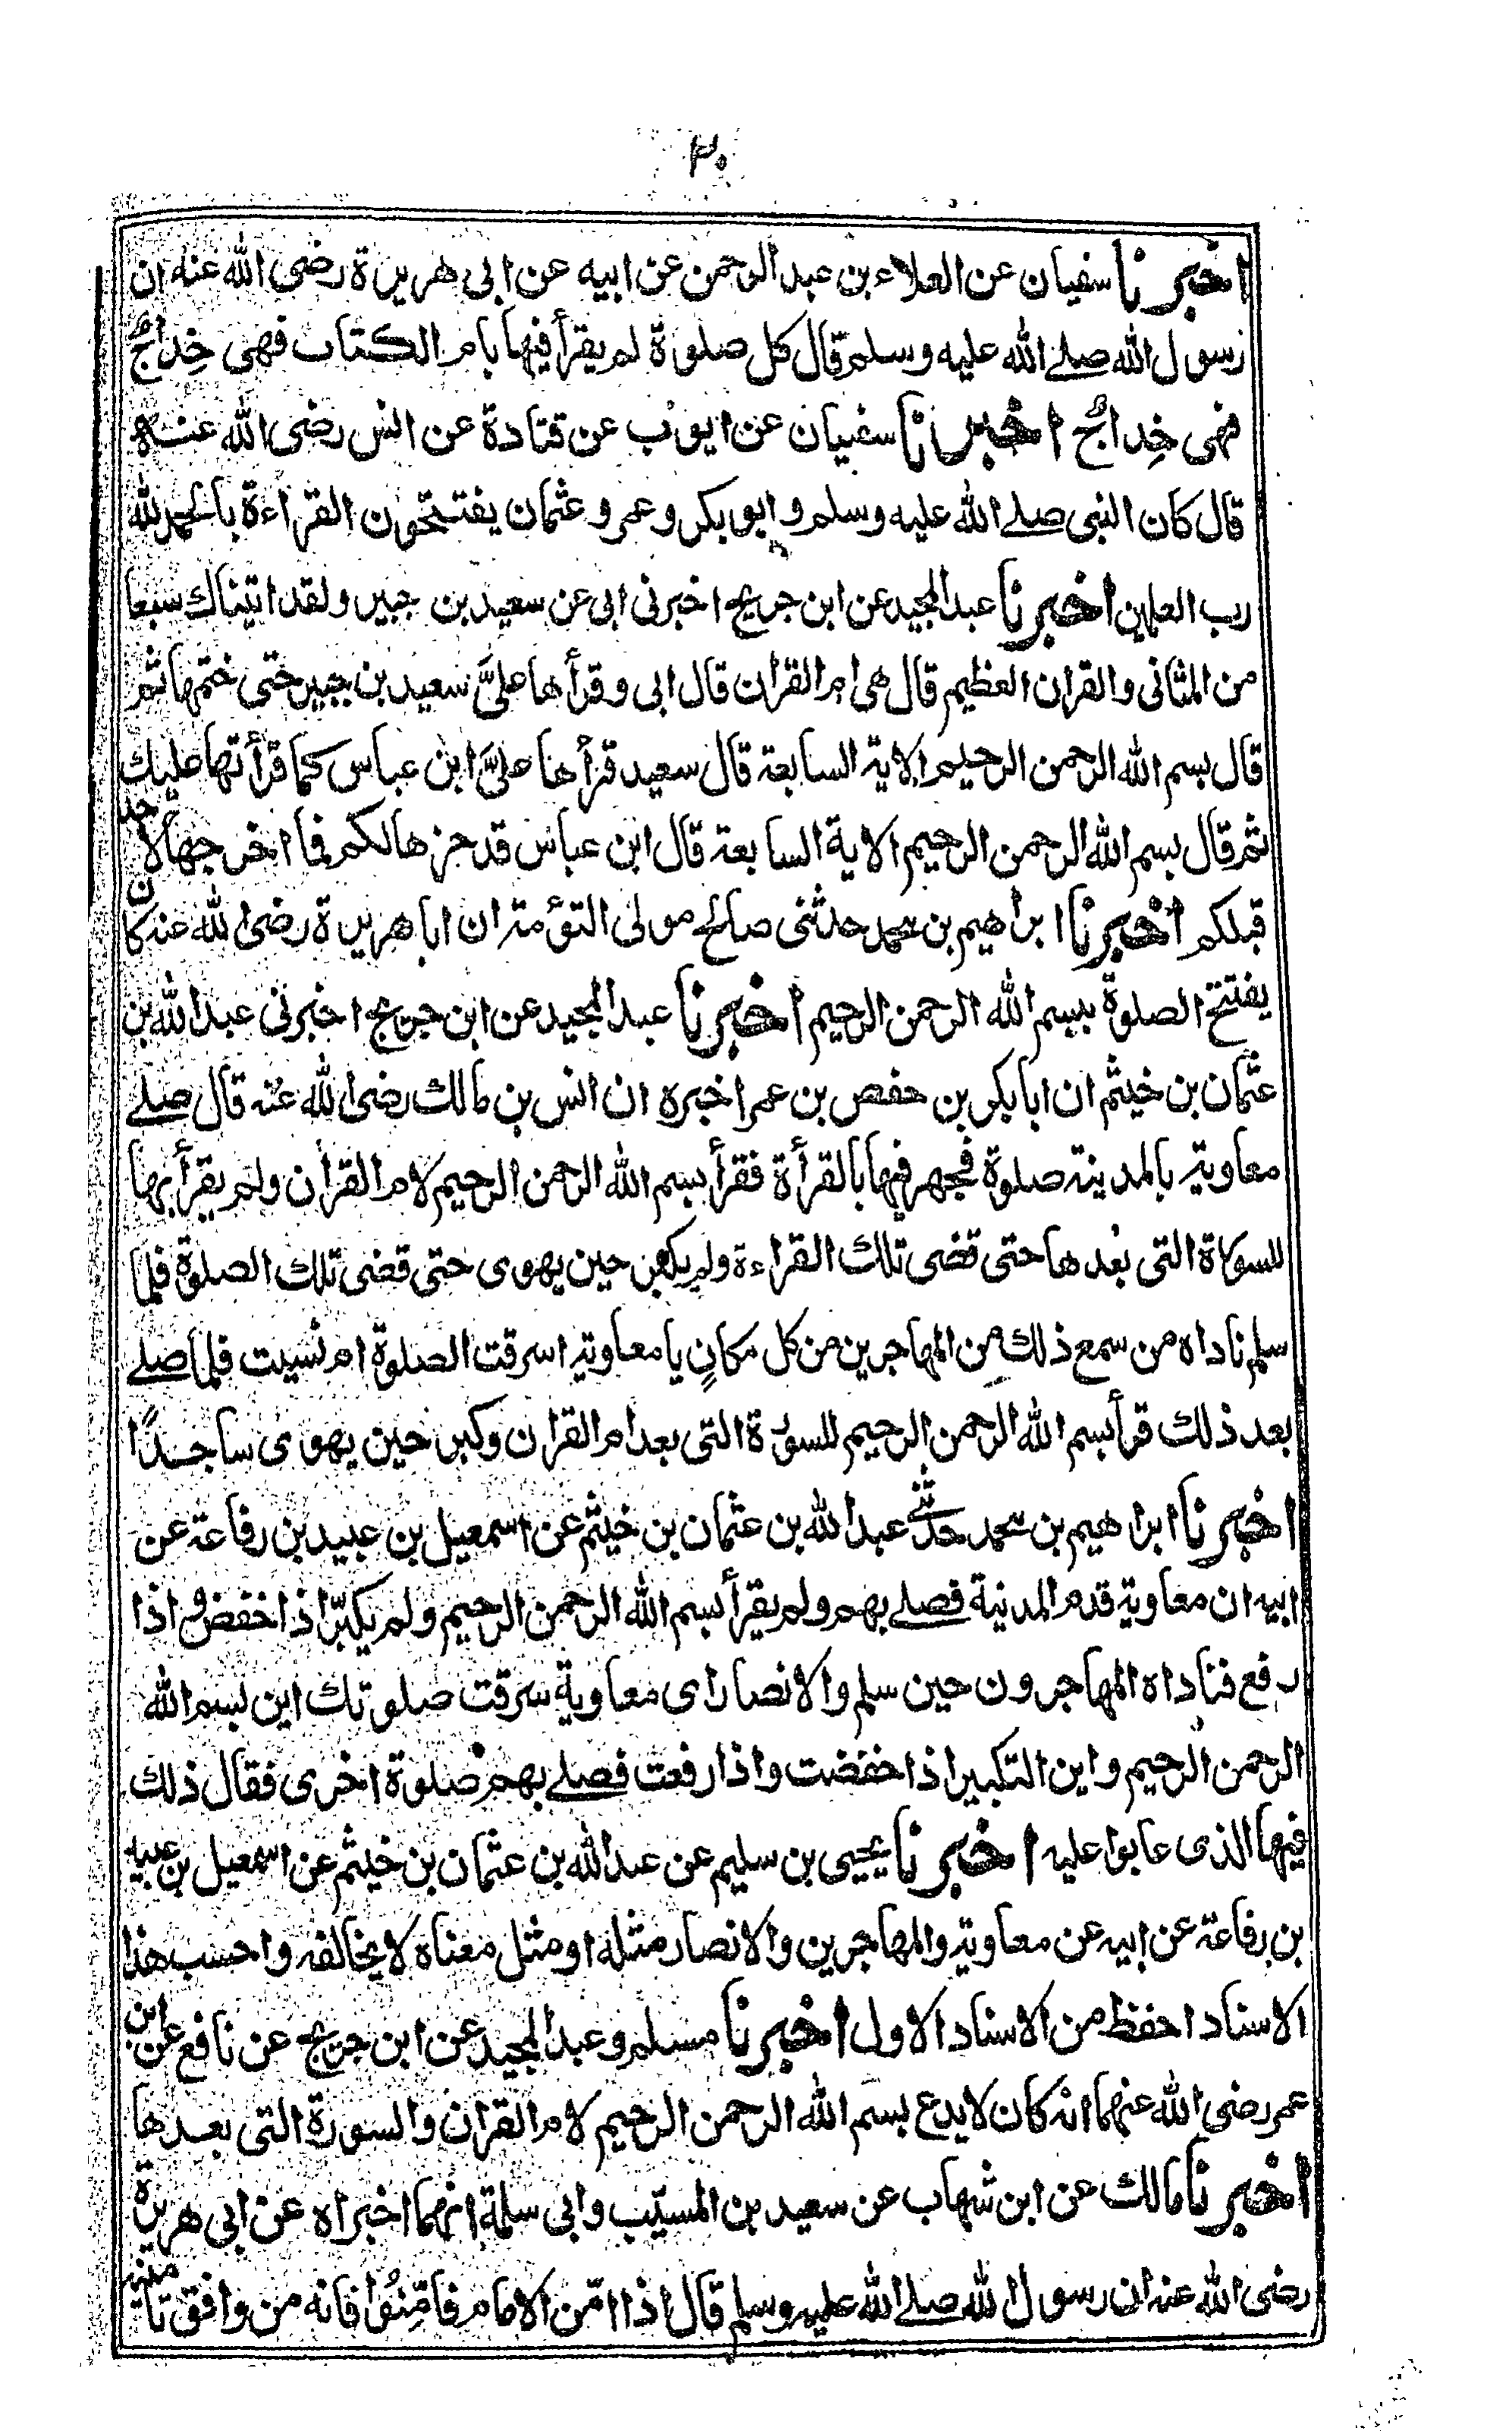 ٢٠
اخبرنا سفيان عن العلاء بن عبد الرحمن عن ابيه عن ابى هريرة رضى الله عنه ان
رسول الله صلے الله عليه وسلم قال كل صلوة لم يقرأ فيها بام الكتاب فهى خِداجٌ
فهى خِداجٌ اخبرنا سفيان عن ايوب عن قتادة عن انس رضى الله عنه
قال كان النبى صلے الله عليه وسلم و ابو بكر و عمر و عثمان يفتتحون القراءة بالحمد لله
رب العلمين اخبرنا عبد المجيد عن ابن جريج اخبرنى ابى عن سعيد بن جبير ولقد اتيناك سبعا
من المثانى والقران العظيم قال هى ام القران قال ابى وقرأها علىَّ سعيد بن جبير حتى ختمها ثم
قال بسم الله الرحمن الرحيم الاية السابعة قال سعيد قرأها علىَّ ابن عباس كما قرأتها عليك
ثم قال بسم الله الرحمن الرحيم الاية السابعة قال ابن عباس قد حزها لكم فما اخرجها لاحد
قبلكم اخبرنا ابراهيم بن محمد حدثنى صالح مولى التؤمة ان ابا هريرة رضى الله عنه كان
يفتتح الصلوة ببسم الله الرحمن الرحيم اخبرنا عبد المجيد عن ابن جريج اخبرنى عبد الله بن
عثمان بن خيثم ان ابا بكر بن حفص بن عمر اخبره ان انس بن مالك رضى الله عنه قال صلے
معاوية بالمدينة صلوة فجهر فيها بالقرأة فقرأ بسم الله الرحمن الرحيم لام القرأن ولم يقرأ بها
للسورة التى بعدها حتى قضى تلك القراءة ولم يكبر حين يهوى حتى قضى تلك الصلوة فلما
سلم ناداه من سمع ذلك من المهاجرين من كل مكانٍ يا معاوية اسرقت الصلوة ام نسيت فلما صلے
بعد ذلك قرأ بسم الله الرحمن الرحيم للسورة التى بعد ام القران وكبر حين يهوى ساجدًا
اخبرنا ابراهيم بن محمد حدثنى عبد الله بن عثمان بن خيثم عن اسمعيل بن عبيد بن رفاعة عن
ابيه ان معاوية قدم المدينة فصلے بهم ولم يقرأ بسم الله الرحمن الرحيم ولم يكبّر اذا خفض و اذا
رفع فناداه المهاجرون حين سلم والانصار اى معاوية سرقت صلوتك اين بسم الله
الرحمن الرحيم و اين التكبير اذا خفضت واذا رفعت فصلے بهم صلوة اخرى فقال ذلك
فيها الذى عابوا عليه اخبرنا يحيى بن سليم عن عبد الله بن عثمان بن خيثم عن اسمعيل بن عبيد
بن رفاعة عن ابيه عن معاوية والمهاجرين والانصار مثله او مثل معناه لا يخالفه واحسب هذا
الاسناد احفظ من الاسناد الاول اخبرنا مسلم و عبد المجيد عن ابن جريج عن نافع عن ابن
عمر رضى الله عنهما انه كان لا يدع بسم الله الرحمن الرحيم لام القران والسورة التى بعدها
اخبرنا مالك عن ابن شهاب عن سعيد بن المسيّب وابى سلمة انهما اخبراه عن ابى هريرة
رضى الله عنه ان رسول الله صلے الله عليه وسلم قال اذا امّن الامام فامّنُوا فانه من وافق تامينه